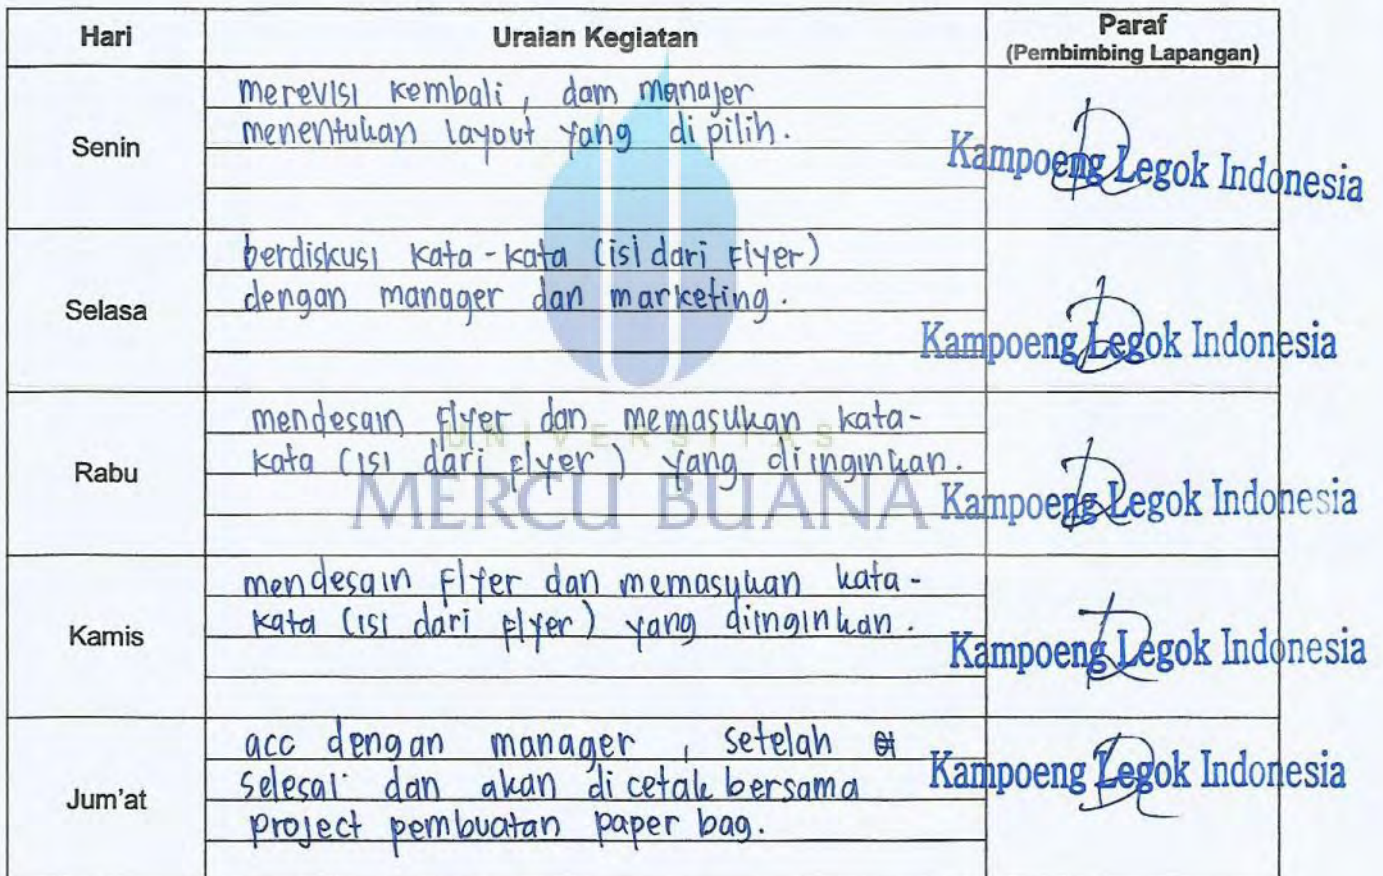 Hari Uraian Kegiatan Paraf
(Pembimbing Lapangan)
Senin
merevisi kembali, dam manajer
menentukan layout yang di pilih.
Kampoeng Legok Indonesia
Selasa
berdiskusi kata-kata (isi dari Flyer)
dengan manager dan marketing.
Kampoeng Legok Indonesia
Rabu
mendesain Flyer dan memasukan kata-
kata (isi dari Flyer) yang diinginkan.
Kampoeng Legok Indonesia
UNIVERSITAS
MERCU BUANA
Kamis
mendesain Flyer dan memasukan kata-
kata (isi dari Flyer) yang diinginkan.
Kampoeng Legok Indonesia
Jum'at
acc dengan manager, setelah
selesai dan akan di cetak bersama
project pembuatan paper bag.
Kampoeng Legok Indonesia